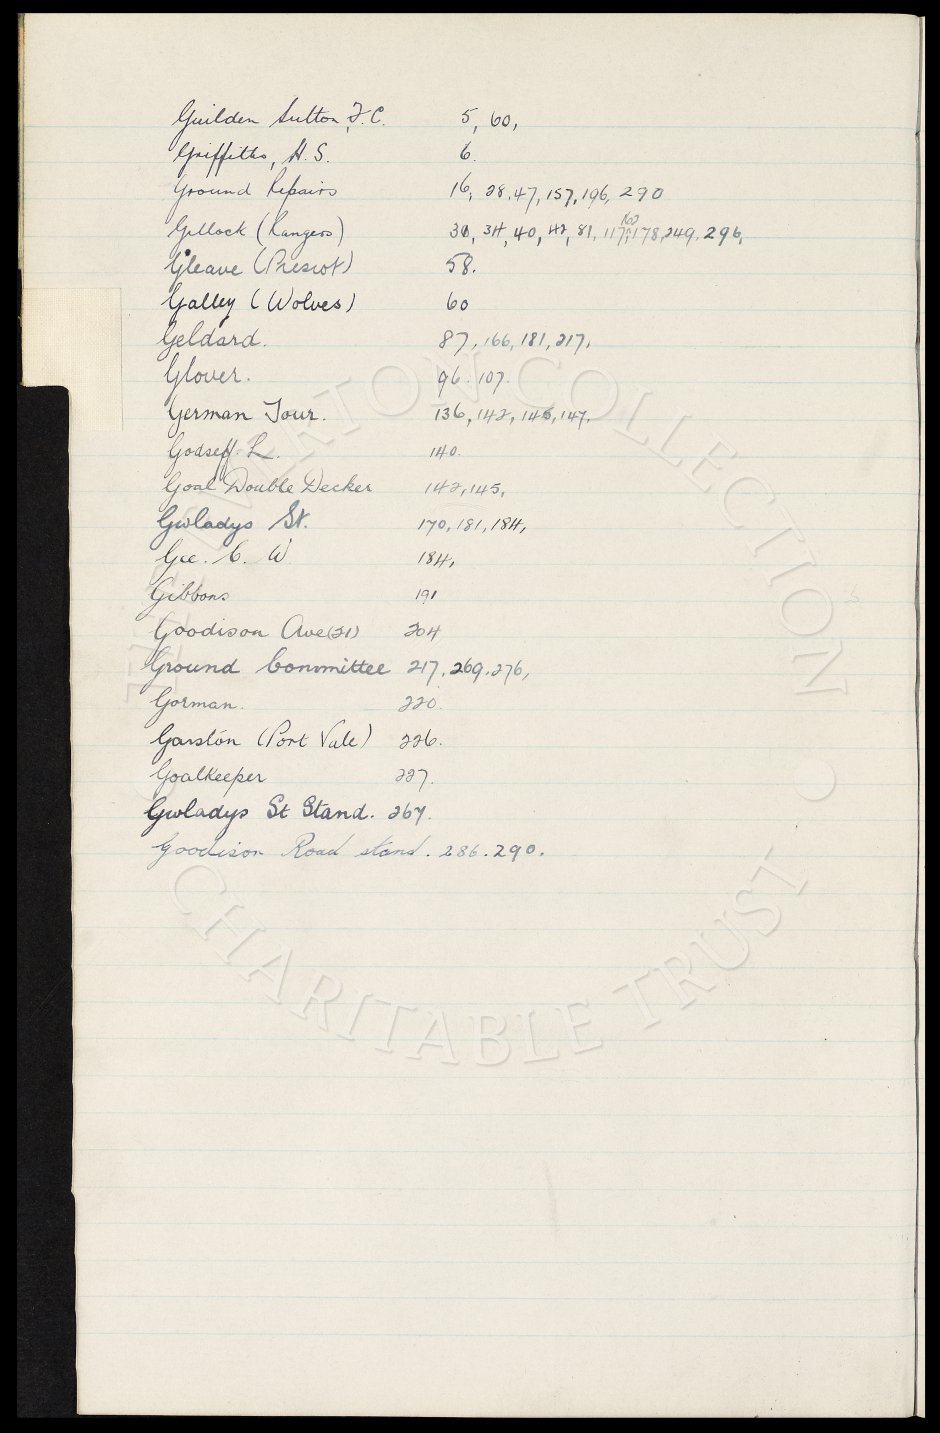 Guilden Sutton, F.C. 5, 60,
Griffiths, H.S. 6.
Ground Repairs 16, 28, 47, 157, 196, 290
Gillock (Rangers) 30, 34, 40, 42, 81, 117, 160, 178, 249, 296,
Gleave (Prescot) 58.
Galley (Wolves) 60
Geldard. 87, 166, 181, 217,
Glover. 96. 107.
German Tour. 136, 142, 145, 147,
Godseff. L. 140.
Goal Double Decker 142, 145,
Gwladys St. 170, 181, 184,
Gee. C. W 184,
Gibbons 191
Goodison Ave (21) 204
Ground Committee 217, 269, 276,
Gorman. 220.
Garston (Port Vale) 226.
Goalkeeper 227.
Gwladys St Stand. 267.
Goodison Road stand. 286. 290.
THE EVERTON COLLECTION
CHARITABLE TRUST